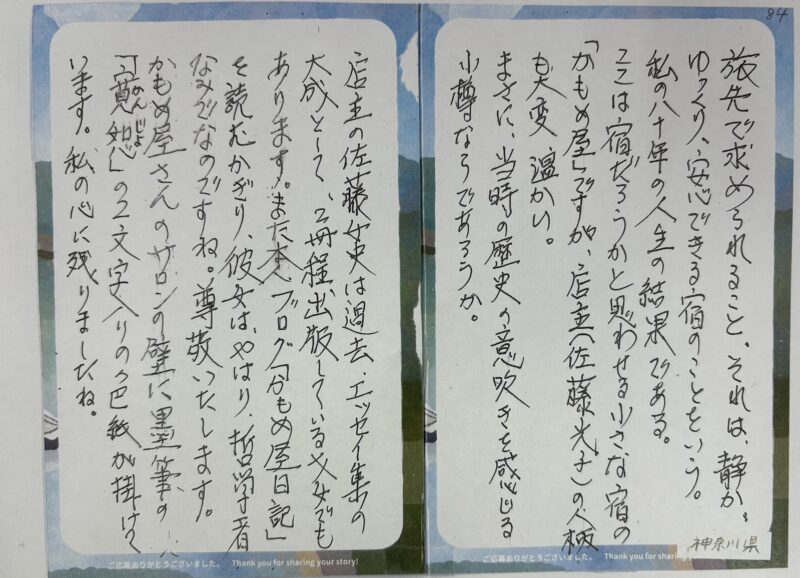 84
旅先で求められること、それは、静か、
ゆっくり、安心できる宿のことをいう。
私の八十年の人生の結果である。
ここは宿だろうかと思わせる小さな宿の
「かもめ屋」ですが、店主(佐藤光子)の人柄
も大変温かい。
まさに、当時の歴史の意吹きを感じる
小樽ならであろうか。
神奈川県
ご応募ありがとうございました。 Thank you for sharing
店主の佐藤女史は過去、エッセイ集の
大成として、2冊程出版している才女でも
あります。また本、ブログ「かもめ屋日記」
を読むかぎり、彼女は、やはり、哲学者
なみなのですね。尊敬いたします。
かもめ屋さんのサロンの壁に墨筆の
「寛恕」の2文字入りの色紙が掛けて
かんじょ
います。私の心に残りましたね。
ご応募ありがとうございました。 Thank you for sharing your story!